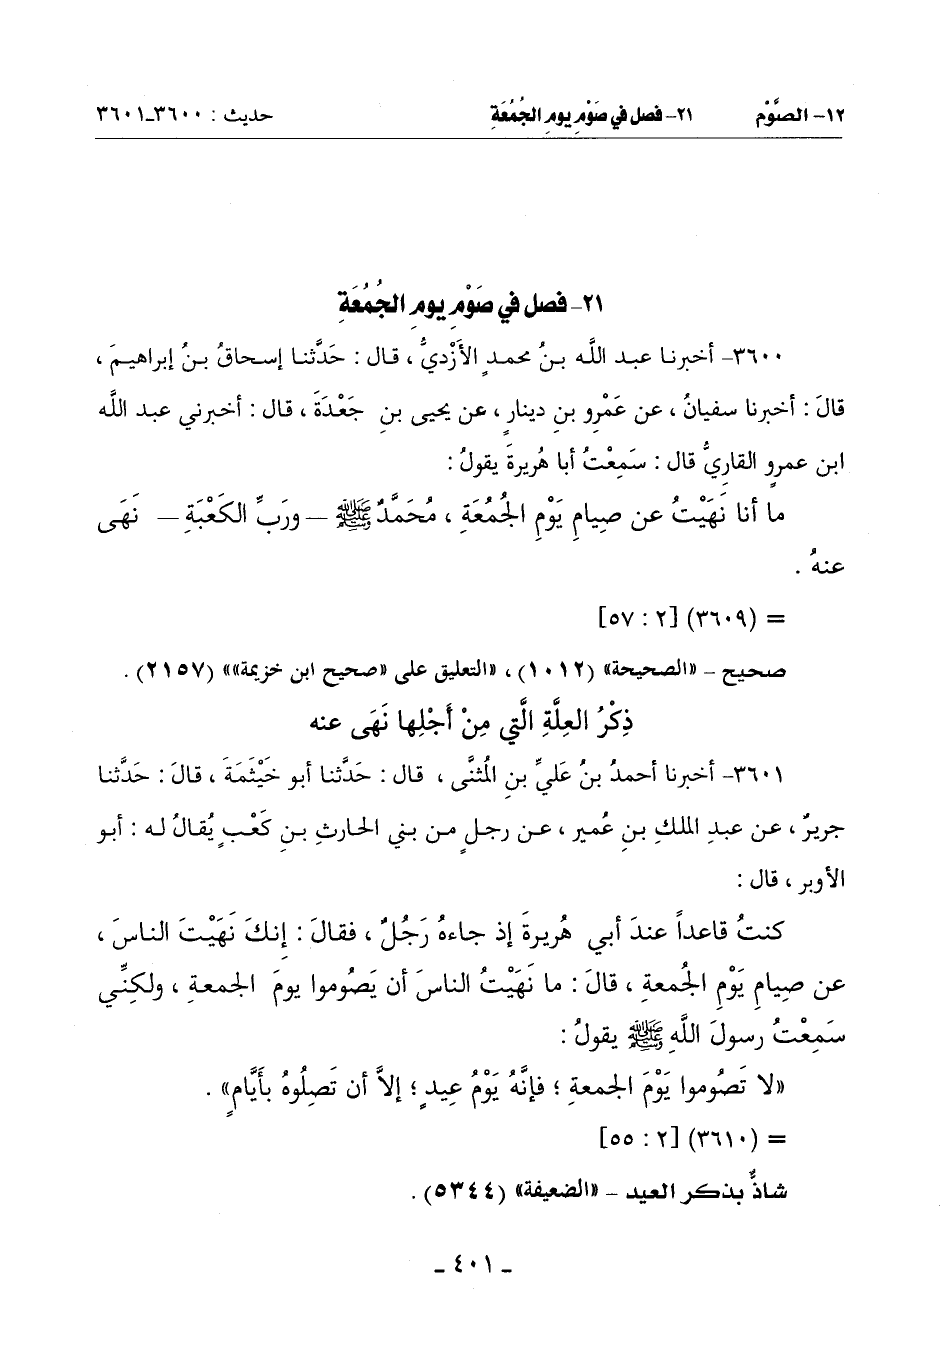 ١٢- الصَّوْم ٢١- فصل في صَوْمِ يومِ الجُمُعَةِ حديث : ٣٦٠٠-٣٦٠١
٢١- فصل في صَوْمِ يومِ الجُمُعَةِ
٣٦٠٠- أخبرنا عبد اللَّه بنُ محمدٍ الأَزْديُّ ، قال : حَدَّثنا إسحاقُ بنُ إبراهيمَ ،
قالَ : أخبرنا سفيانُ ، عن عَمْرِو بنِ دينارٍ ، عن يحيى بنِ جَعْدَةَ ، قال : أخبرني عبد اللَّه
ابن عمرٍو القاريُّ قال : سَمِعْتُ أبا هُريرةَ يقولُ :
ما أنا نَهَيْتُ عن صيامِ يَوْمِ الجُمُعَةِ ، مُحَمَّدٌ ﷺ – ورَبِّ الكَعْبَةِ – نَهَى
عنهُ .
= (٣٦٠٩) [٢ : ٥٧]
صحيح – «الصحيحة» (١٠١٢) ، «التعليق على «صحيح ابن خزيمة»» (٢١٥٧) .
ذِكْرُ العِلَّةِ الَّتي مِنْ أَجْلِها نَهَى عنه
٣٦٠١- أخبرنا أحمدُ بنُ عَليِّ بنِ المُثنَّى ، قال : حَدَّثنا أبو خَيْثمَةَ ، قالَ : حَدَّثنا
جريرٌ ، عن عبدِ الملكِ بنِ عُميرٍ ، عن رجلٍ من بني الحارثِ بنِ كَعْبٍ يُقالُ له : أبو
الأوبر ، قال :
كنتُ قاعداً عندَ أبي هُريرةَ إذ جاءهُ رَجُلٌ ، فقالَ : إنكَ نَهَيْتَ الناسَ ،
عن صيامِ يَوْمِ الجُمعةِ ، قالَ : ما نَهَيْتُ الناسَ أن يَصُوموا يومَ الجمعةِ ، ولكنِّي
سَمِعْتُ رسولَ اللَّهِ ﷺ يقولُ :
«لا تَصُوموا يَوْمَ الجمعةِ ؛ فإنَّهُ يَوْمُ عيدٍ ؛ إلاَّ أن تَصِلُوهُ بأَيَّامٍ» .
= (٣٦١٠) [٢ : ٥٥]
شاذٌّ بذكر العيد – «الضعيفة» (٥٣٤٤) .
- ٤٠١ -